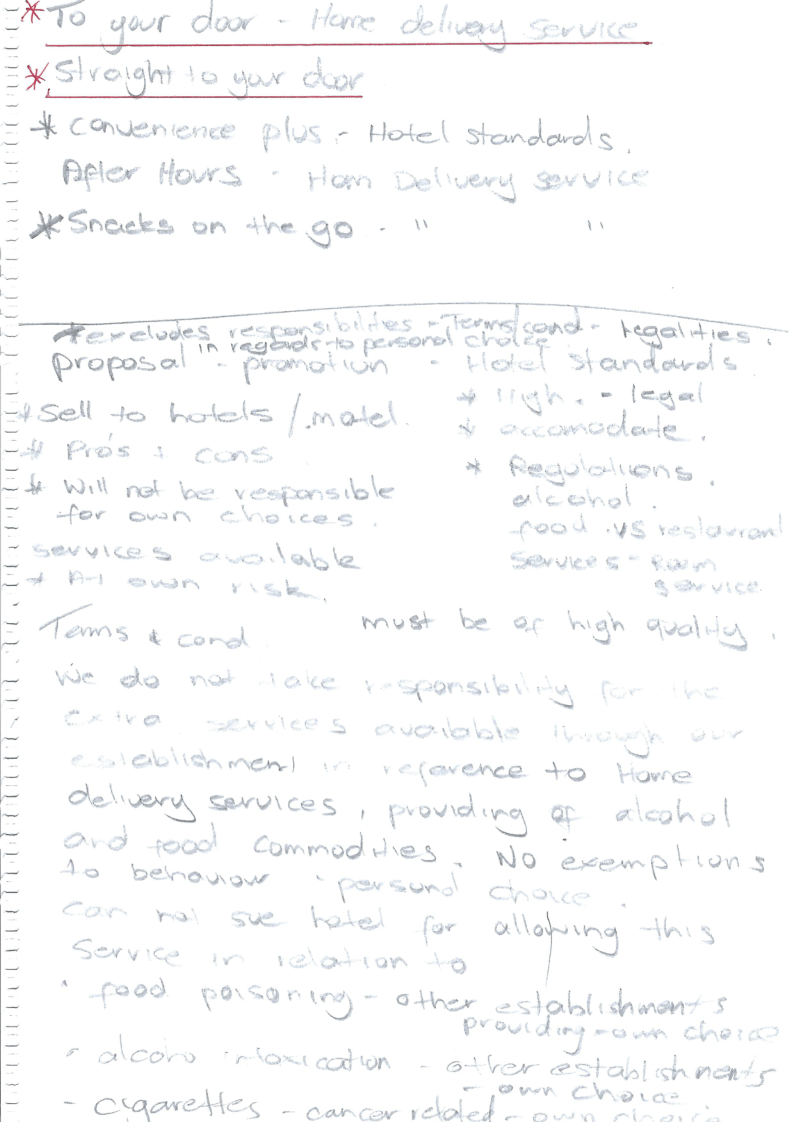 * To your door - Home delivery service
* Straight to your door
* Convenience plus - Hotel standards.
After Hours - Hom Delivery service
* Snacks on the go - " "
* excludes responsibilities - Terms/cond - legalities.
in regards to personal choice.
proposal - promotion - Hotel standards
* Sell to hotels / motel.
* Pro's & cons
* Will not be responsible
for own choices.
services available
* own risk.
* High. - legal
* accomodate.
* Regulations.
alcohol.
food .vs restaurant
services - room
service.
must be of high quality.
Terms & cond
We do not take responsibility for the
extra services available through our
establishment in reference to Home
delivery services, providing of alcohol
and food commodities. No exemptions
to behaviour personal choice.
can not sue hotel for allowing this
service in relation to
- food poisoning - other establishments
providing - own choice
- alcoho intoxication - other establishments
- own choice
- cigarettes - cancer related - own choice